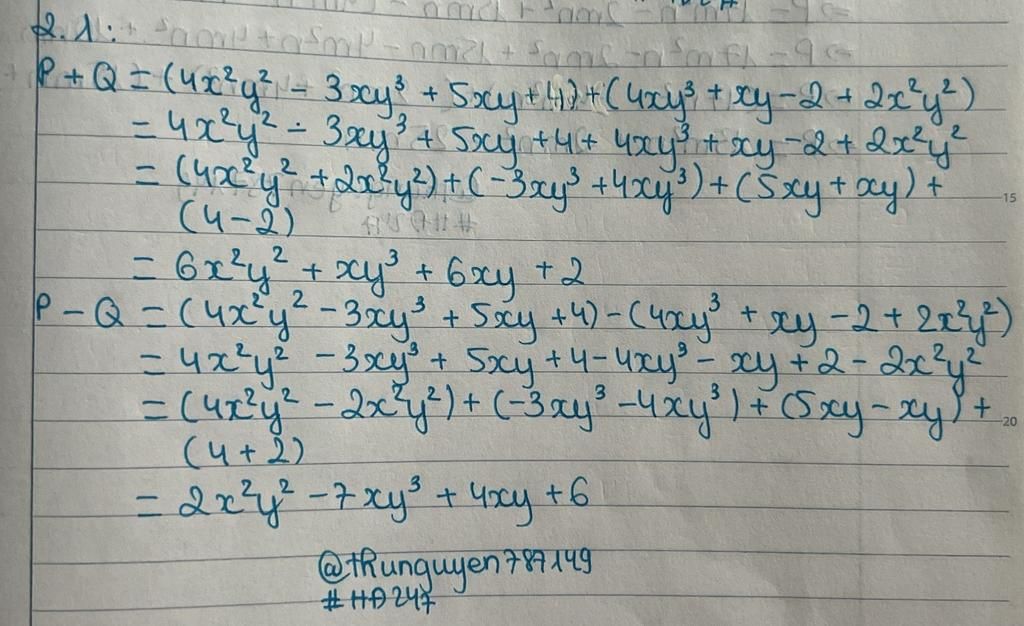 2.1:
P + Q = (4x²y² - 3xy³ + 5xy + 4) + (4xy³ + xy - 2 + 2x²y²)
= 4x²y² - 3xy³ + 5xy + 4 + 4xy³ + xy - 2 + 2x²y²
= (4x²y² + 2x²y²) + (-3xy³ + 4xy³) + (5xy + xy) +
15
(4 - 2)
= 6x²y² + xy³ + 6xy + 2
P - Q = (4x²y² - 3xy³ + 5xy + 4) - (4xy³ + xy - 2 + 2x²y²)
= 4x²y² - 3xy³ + 5xy + 4 - 4xy³ - xy + 2 - 2x²y²
= (4x²y² - 2x²y²) + (-3xy³ - 4xy³) + (5xy - xy) +
20
(4 + 2)
= 2x²y² - 7xy³ + 4xy + 6
@thunguyen787149
#HĐ247